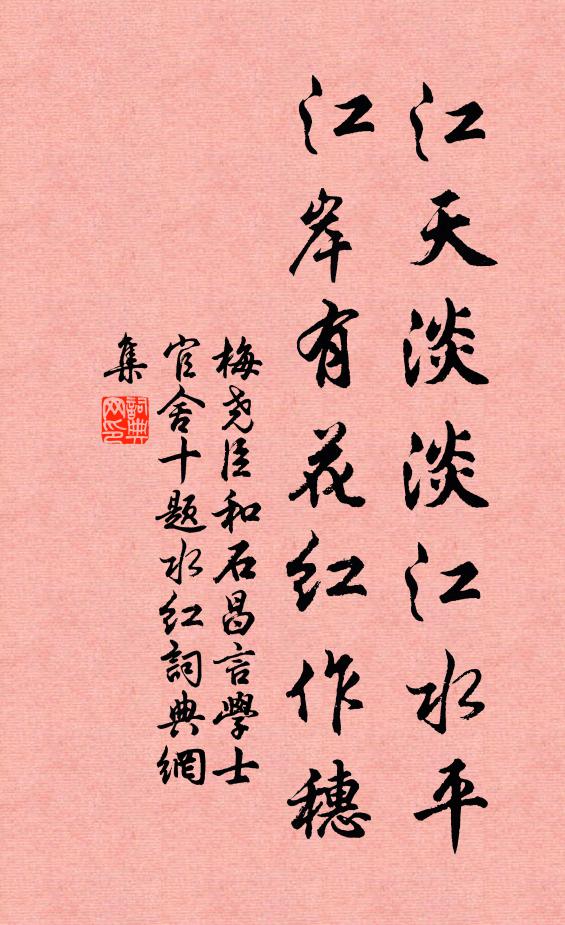 江天淡淡江水平
江岸有花红作穗
梅尧臣和石昌言學士
官舍十题水红詞典網
集
詞典
网印